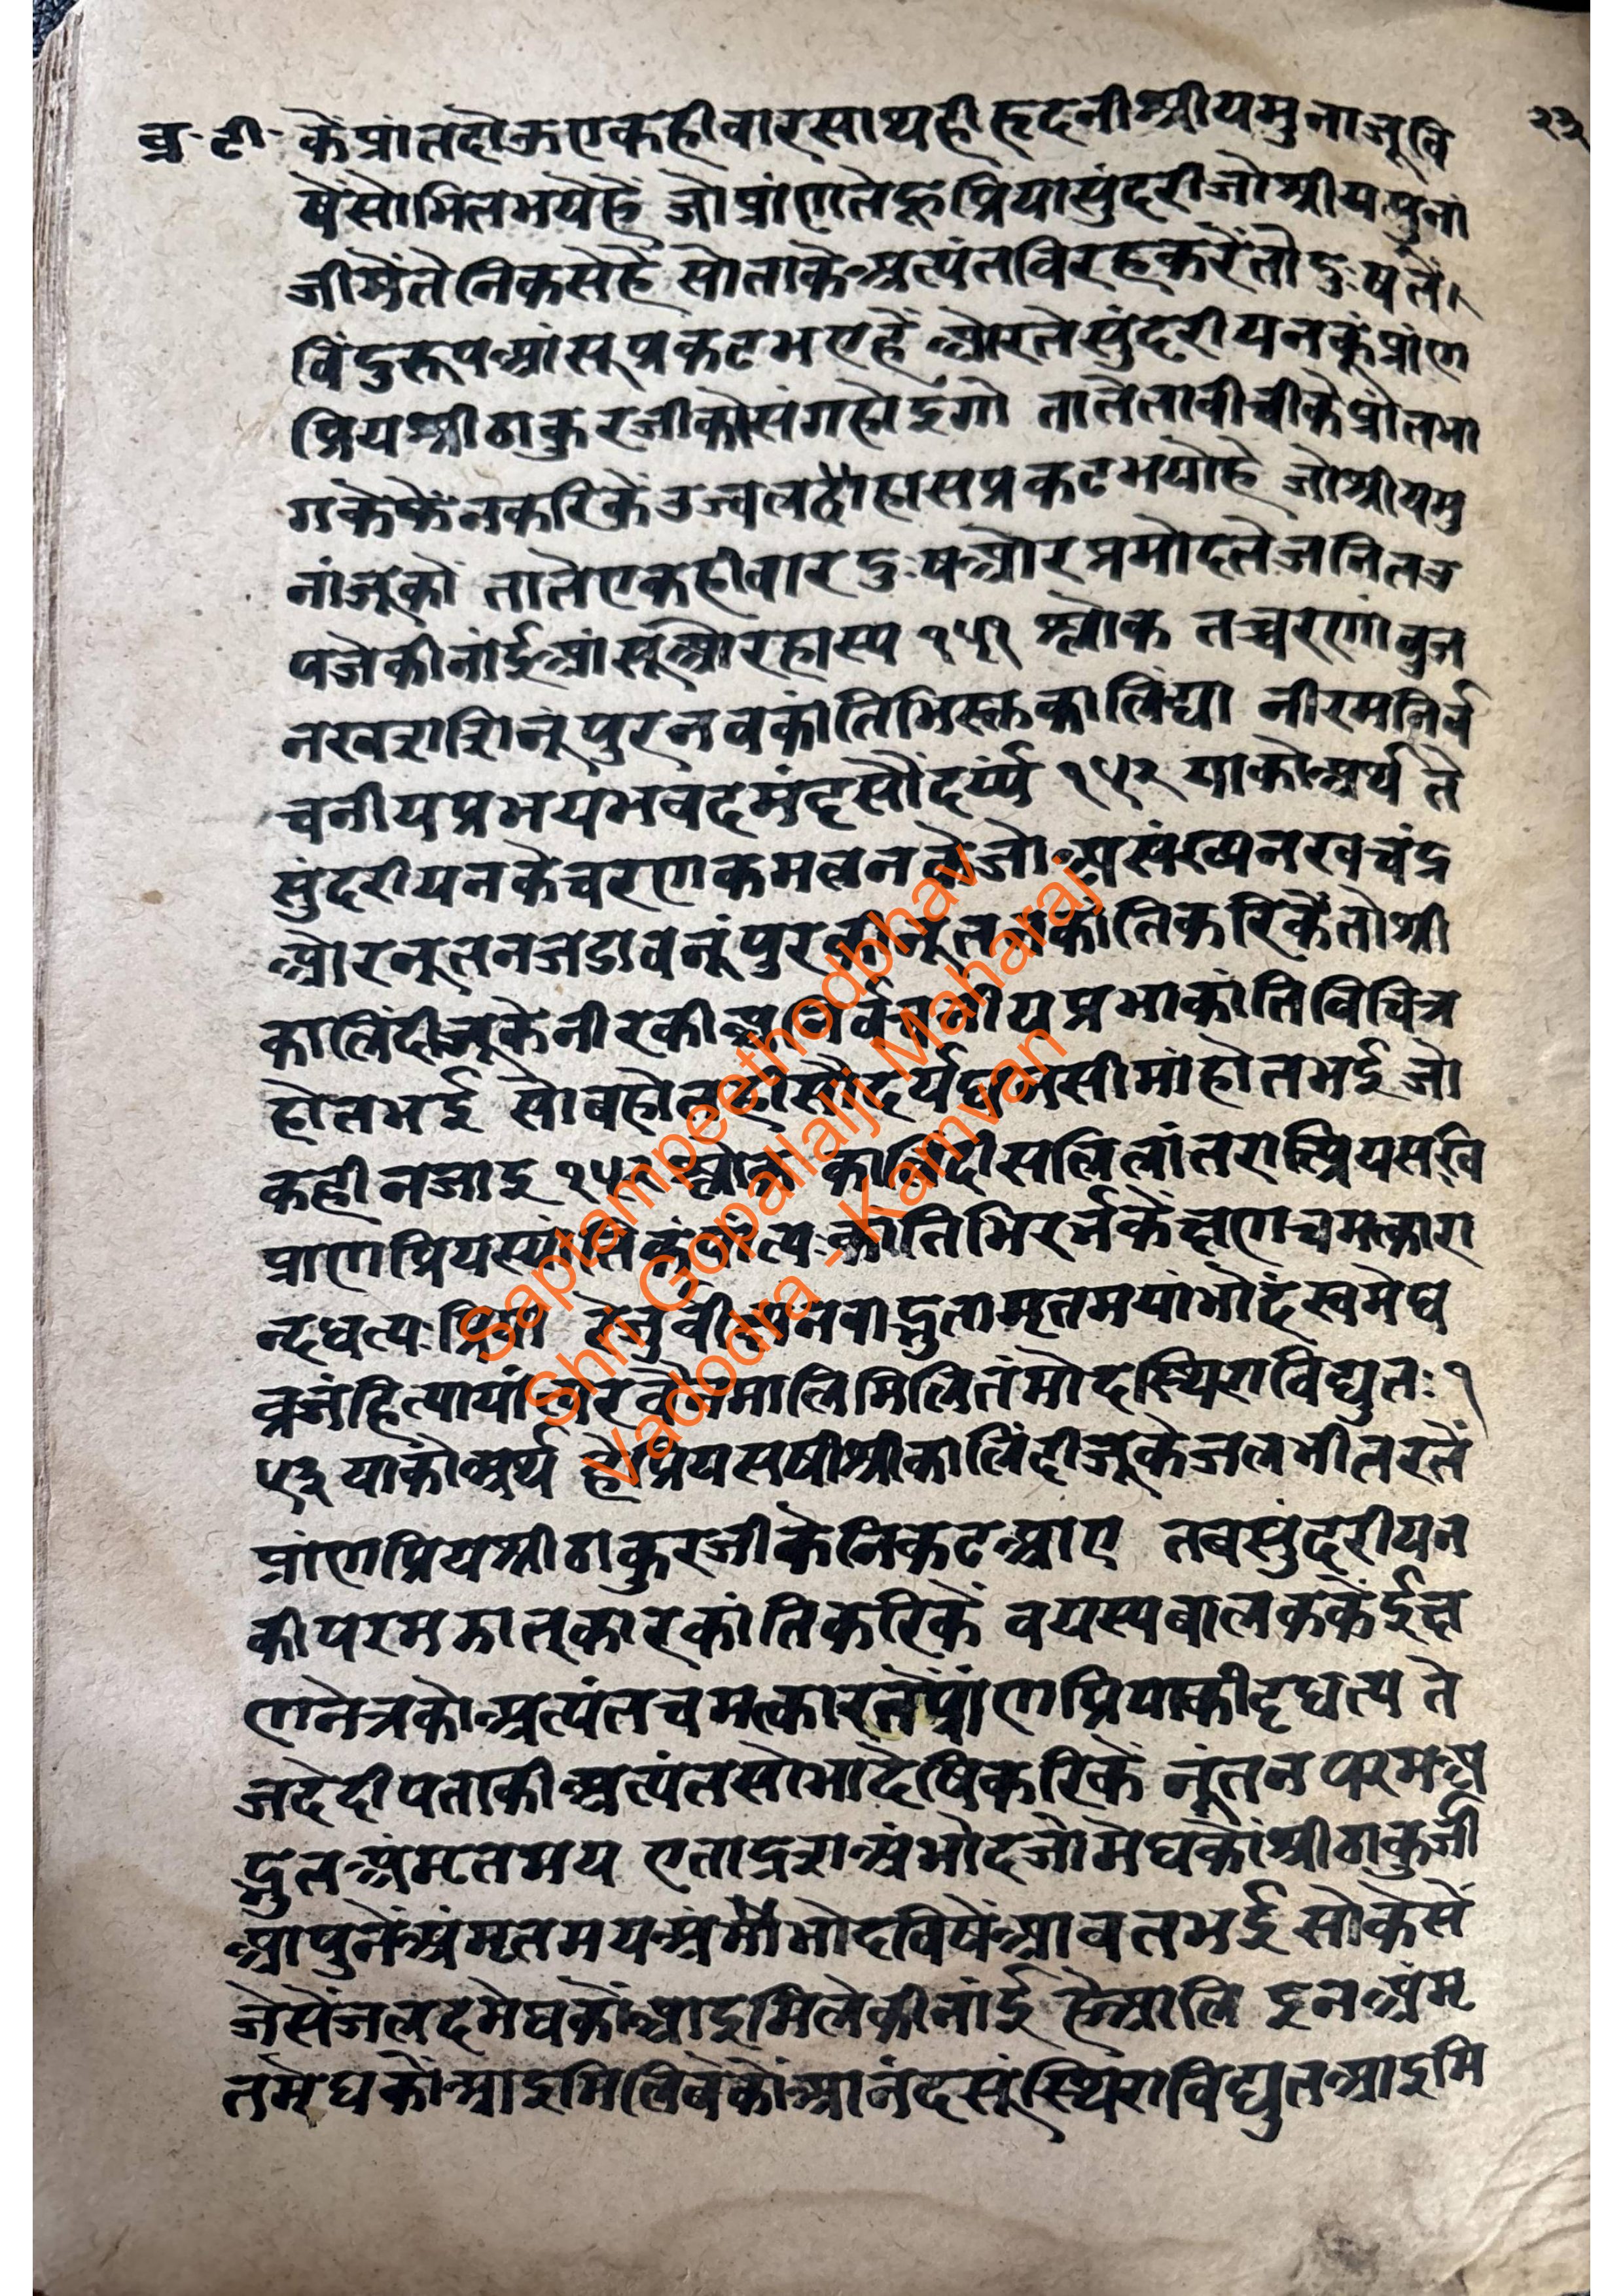 व्र·टी· कें प्रांतदोऊएकहीवारसाथहीहृदनीश्रीयमुनाजूवि २३
षेंसोमिलभयेहें जोप्रांणतेहूप्रियासुंदरीजोश्रीयमुनां
जीमेंतेनिकसेहें सोताकेअत्यंतविरहकरेंतोदुःषतें
विंदुरूपआंसूप्रकटभएहें ओरतेसुंदरीयनकूंप्रांण
प्रियश्रीठाकुरजीकोसंगहोइगो तातेतावीचीकेप्रांतभा
गकेफेंनकरिकेंउज्वलहाँहासप्रकटभयोहे जोश्रीयमु
नांजूको तातेएकहीवारदुःषओरप्रमोदतेजनितत्र
पजेकीनांईआंसूओरहास्य १५१ श्लोक तच्चरणांवुज
नखराशिनूंपुरनवकांतिभिस्तकालिंद्या नीरमनिर्व
चनीयप्रभयभवदमंदृसौंदर्य्य १५२ याकोअर्थ ते
सुंदरीयनकेचरणकमलनकेजोअसंख्यनखचंद्र
ओरनूतनजडावनूंपुरकीनूतनकांतिकरिकेंतोश्री
कालिंदीजूकेनीरकीअनिर्वचनीयप्रभाकांतिविचित्र
होतभई सोबहोतहीसौंदर्यघनसीमांहोतभई जो
कहीनजाइ १५२ श्लोक कालिंदीसलिलांतरात्प्रियसखि
प्राणप्रियस्यांतिकं कांतिभिरर्भकेक्षणचमत्कारा
न्दधत्यःप्रिया नवाद्भुतामृतमयांभोदंस्वमेघ
व्रजंहित्पायां मालिमिलितंमोदस्थिराविद्युतः१
५३ याकोअर्थ हेप्रियसषीश्रीकालिंदीजूकेजलभीतरतें
प्रांणप्रियश्रीठाकुरजीकेनिकटआए तबसुंदरीयन
कीपरमझालूकारकांतिकरिकें वयस्यबालककेंईक्ष
णनेत्रकोअत्यंतचमत्कारतेंप्रांणप्रियाकीदृधत्य ते
जदेदीपताकीअत्यंतसोभादेषिकरिकें नूंतन परमअ
द्भुतअंमतमय एताद्रशअंभोदजोमेघकोंश्रीठाकुर्जी
आपुनेंअंमृतमयअंभोदविषेंआवतभई सोकेसें
जेसेंजलदमेघकोंआइमिलेकीनांई हेआलि इनअंमृ
तमेघकोंआइमिलिबेकोंआनंदसूंस्थिराविद्युतआइमि